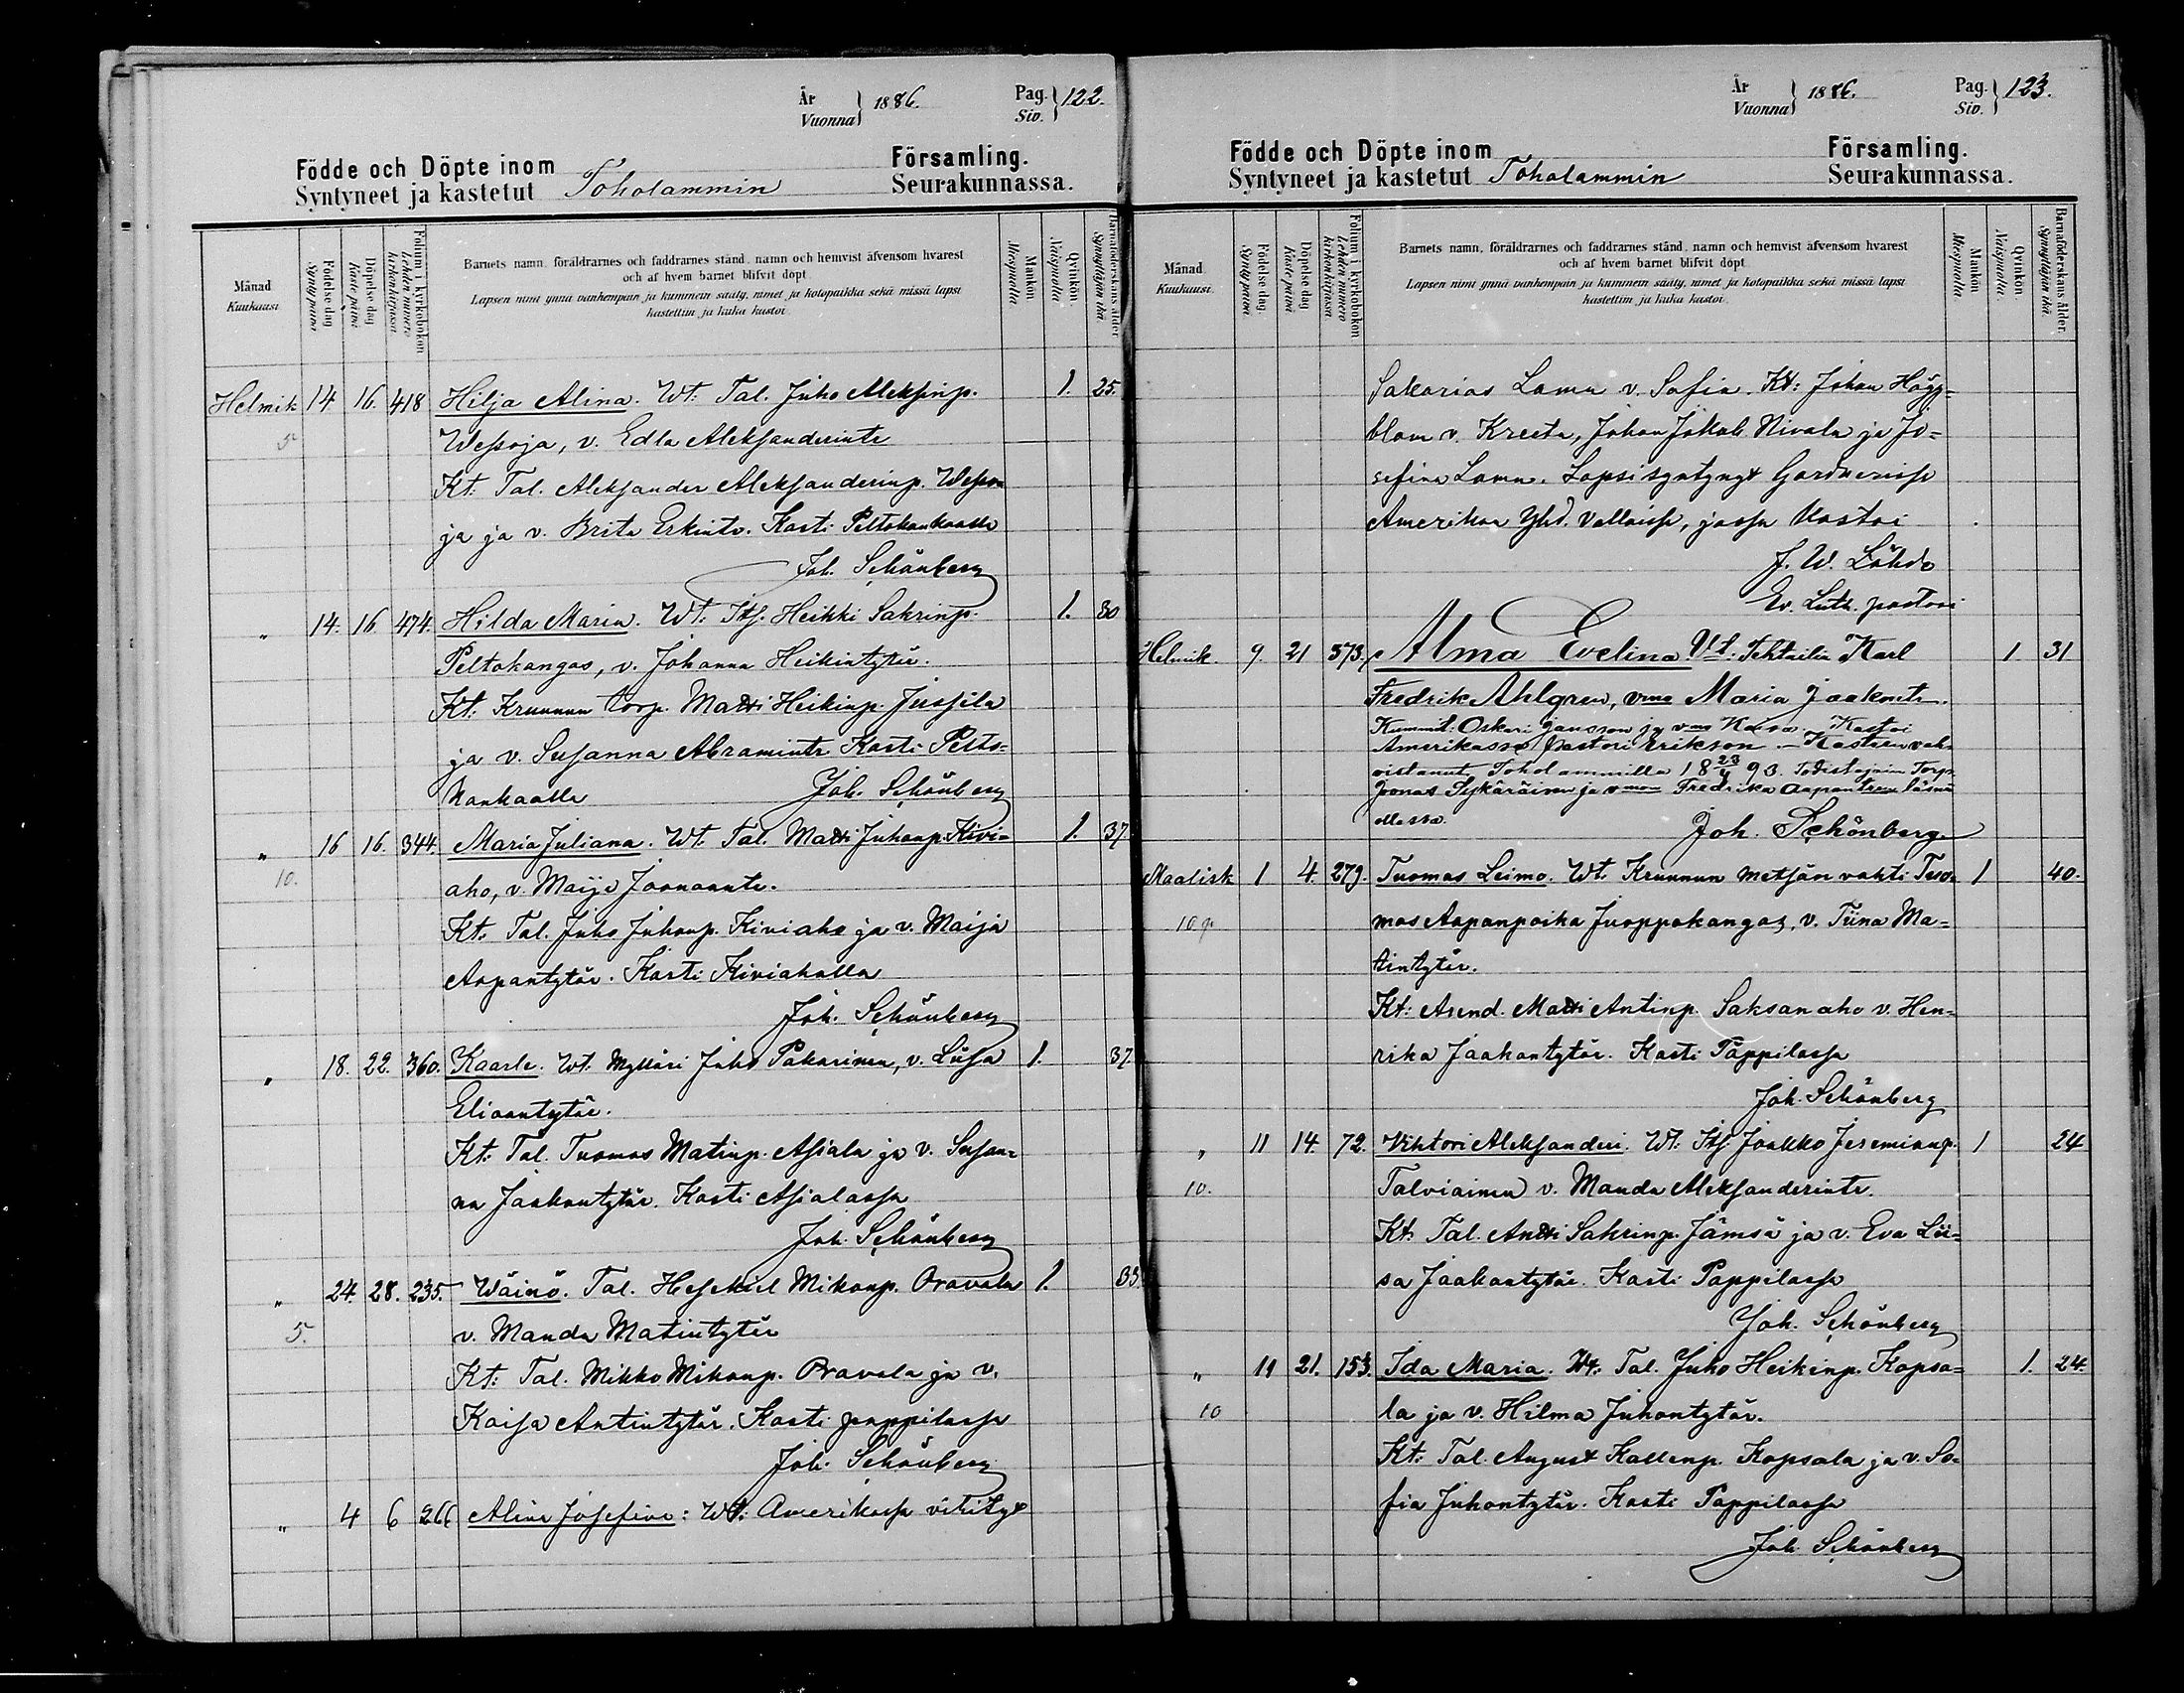 År
Vuonna } 1886.
Pag.
Siv. } 122.
Födde och Döpte inom Församling.
Syntyneet ja kastetut Toholammin Seurakunnassa.
Månad
Kuukausi
Födelsedag
Syntypäivä
Döpelsedag
Kastepäivä
Folium i kyrkoboken
Lehden numero kirkonkirjassa
Barnets namn, föräldrarnes och faddrarnes stånd, namn och hemvist äfvensom hvarest
och af hvem barnet blifvit döpt.
Lapsen nimi ynnä vanhempain ja kummein sääty, nimet ja kotopaikka sekä missä lapsi
kastettiin ja kuka kastoi.
Mankön
Miespuolia
Qvinkön
Naispuolia
Barnaföderskans ålder
Synnyttäjän ikä
Helmik 14 16. 418 Hilja Alina. Wt. Tal. Juho Aleksinp. 1. 25.
5 Wessoja, v. Edla Aleksanderintr
Kt: Tal. Aleksander Aleksanderinp. Wesso
ja ja v. Brita Erkintr. Kasti Peltokankaalla
Joh. Schönberg
" 14. 16 474. Hilda Maria. Wt. Its. Heikki Sakrinp. 1. 30
Peltokangas, v. Johanna Heikintytär.
Kt: Kruunun torp. Matti Heikinp. Jussila
ja v. Susanna Abramintr Kasti Pelto-
kankaalla Joh. Schönberg
" 16 16. 344. Maria Juliana. Wt. Tal. Matti Juhanp. Kivi- 1. 37
10. aho, v. Maija Joonaantr.
Kt. Tal. Juho Juhanp. Kiviaho ja v. Maija
Aapantytär. Kasti Kiviaholla
Joh. Schönberg
" 18. 22. 360. Kaarle. Wt. Mylläri Juho Pakarinen, v. Liisa 1. 37
Eliaantytär.
Kt: Tal. Tuomas Matinp. Assiala ja v. Susan-
na Jaakontytär. Kasti Assialassa
Joh. Schönberg
" 24. 28. 235. Wäinö. Tal. Hesekiel Mikonp. Oravala 1. 33.
5. v. Manda Matintytär
Kt: Tal. Mikko Mikonp. Oravala ja v.
Kaisa Antintytär. Kasti pappilassa
Joh. Schönberg
" 4 6 266 Alina Josefina: Wt: Amerikassa vihityt
År
Vuonna } 1886.
Pag.
Siv. } 123.
Födde och Döpte inom Församling.
Syntyneet ja kastetut Toholammin Seurakunnassa.
Månad
Kuukausi
Födelsedag
Syntypäivä
Döpelsedag
Kastepäivä
Folium i kyrkoboken
Lehden numero kirkonkirjassa
Barnets namn, föräldrarnes och faddrarnes stånd, namn och hemvist äfvensom hvarest
och af hvem barnet blifvit döpt.
Lapsen nimi ynnä vanhempain ja kummein sääty, nimet ja kotopaikka sekä missä lapsi
kastettiin ja kuka kastoi.
Mankön
Miespuolia
Qvinkön
Naispuolia
Barnaföderskans ålder.
Synnyttäjän ikä.
Sakarias Lama v. Sofia. Kt: Johan Hägg-
blom v. Kreeta, Johan Jakob Nivala ja Jo-
sefina Lama. Lapsi syntynyt Gardnerissa
Amerikan Yhd. Valloissa, jossa kastoi
J. W. Lähde
Ev. Luth. pastori
Helmik. 9. 21 573. Alma Evelina. Vt: Tehtailia Karl 1 31
Fredrik Ahlgren, vmo Maria Jaakontr.
Kummit: Oskari Jansson ja vmo
Amerikassa pastori Erikson. - Kasteen vah-
vistanut Toholammilla 18 23/4 93. Todistajain Torp.
Joonas Sykäräisen ja vmon Fredrika Aapantren läsnä
ollessa. Joh. Schönberg
Maalisk 1 4. 279. Tuomas Leimo. Wt. Kruunun metsän vahti Tuo- 1 40.
10 mas Aapanpoika Juoppokangas, v. Tiina Ma-
tintytär.
Kt: Arend. Matti Antinp. Saksanaho v. Hen-
rika Jaakontytär. Kasti Pappilassa
Joh. Schönberg
" 11 14. 72. Vihtori Aleksanderi. Wt: Its Jaakko Jeremianp. 1 24
10. Talviainen v. Manda Aleksanderintr.
Kt. Tal. Antti Sakrinp. Jämsä ja v. Eva Lii-
sa Jaakontytär. Kasti Pappilassa
Joh. Schönberg
" 11 21. 153. Ida Maria. Wt: Tal. Juho Heikinp. Kopsa- 1. 24.
10 la ja v. Hilma Juhontytär.
Kt: Tal. August Kallenp. Kopsala ja v. So-
fia Juhontytär. Kasti Pappilassa
Joh Schönberg